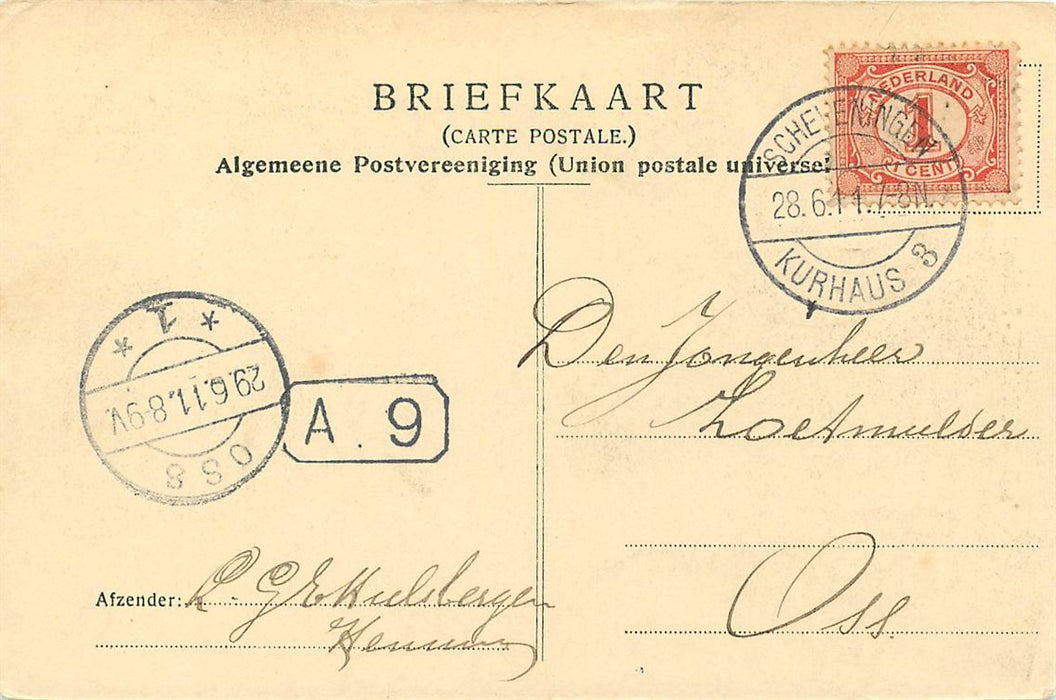 BRIEFKAART
(CARTE POSTALE.)
Algemeene Postvereeniging (Union postale universel
NEDERLAND
1
CENT
SCHEVENINGEN
28.6.11.7-8N.
KURHAUS 3
1
29.6.11.8-9V.
OSS
A. 9
Den Jongenheer
Zoetmulder
Oss.
Afzender: